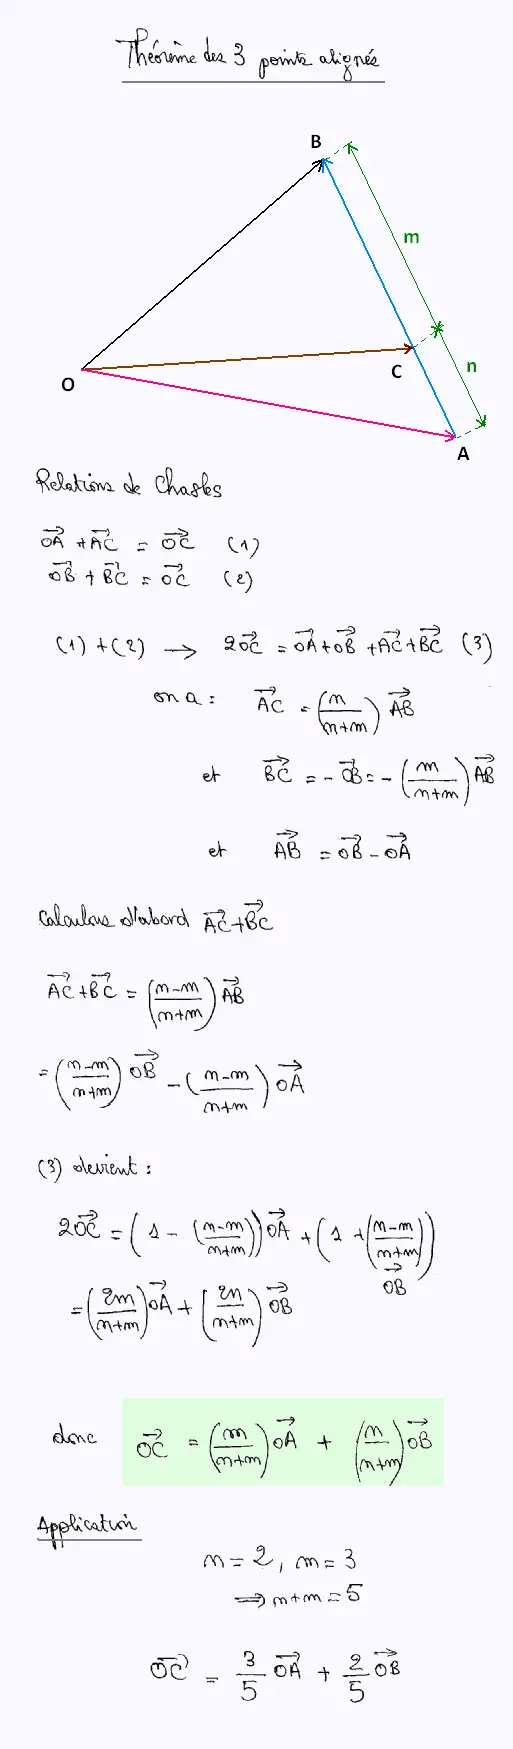 Théorème des 3 points alignés
B
m
C
n
O
A
Relations de Chasles
\overrightarrow{OA} + \overrightarrow{AC} = \overrightarrow{OC} (1)
\overrightarrow{OB} + \overrightarrow{BC} = \overrightarrow{OC} (2)
(1) + (2) → 2\overrightarrow{OC} = \overrightarrow{OA} + \overrightarrow{OB} + \overrightarrow{AC} + \overrightarrow{BC} (3)
on a : \overrightarrow{AC} = (\frac{n}{n+m}) \overrightarrow{AB}
et \overrightarrow{BC} = - \overrightarrow{CB} = - (\frac{m}{n+m}) \overrightarrow{AB}
et \overrightarrow{AB} = \overrightarrow{OB} - \overrightarrow{OA}
Calculons d'abord \overrightarrow{AC} + \overrightarrow{BC}
\overrightarrow{AC} + \overrightarrow{BC} = (\frac{n-m}{n+m}) \overrightarrow{AB}
= (\frac{n-m}{n+m}) \overrightarrow{OB} - (\frac{n-m}{n+m}) \overrightarrow{OA}
(3) devient :
2\overrightarrow{OC} = (1 - (\frac{n-m}{n+m})) \overrightarrow{OA} + (1 + (\frac{n-m}{n+m})) \overrightarrow{OB}
= (\frac{2m}{n+m}) \overrightarrow{OA} + (\frac{2n}{n+m}) \overrightarrow{OB}
donc \overrightarrow{OC} = (\frac{m}{n+m}) \overrightarrow{OA} + (\frac{n}{n+m}) \overrightarrow{OB}
Application
n = 2, m = 3
⟹ n+m = 5
\overrightarrow{OC} = \frac{3}{5} \overrightarrow{OA} + \frac{2}{5} \overrightarrow{OB}